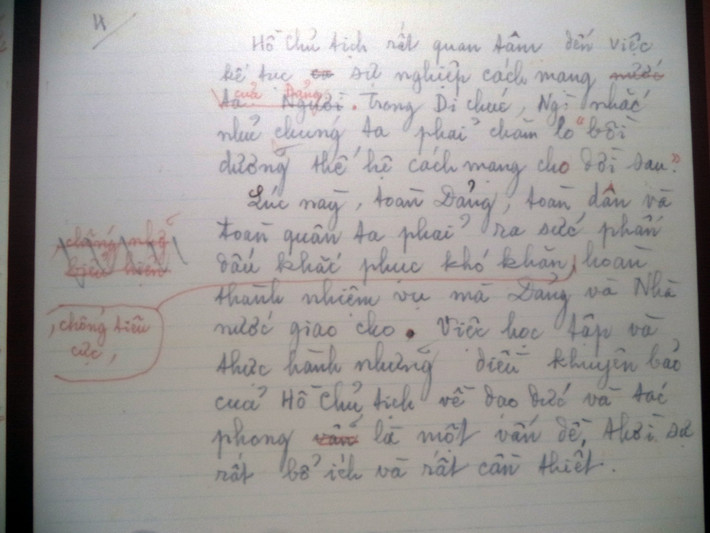 4
Hồ Chủ tịch rất quan tâm đến việc
kế tục sự nghiệp cách mạng nước
ta của Đảng Người. Trong Di chúc, Ng` nhắc
nhở chúng ta phải chăm lo "bồi
dưỡng thế hệ cách mạng cho đời sau."
Lúc này, toàn Đảng, toàn dân và
toàn quân ta phải ra sức phấn
đấu khắc phục khó khăn, hoàn
thành nhiệm vụ mà Đảng và Nhà
nước giao cho. Việc học tập và
thực hành những điều khuyên bảo
của Hồ Chủ tịch về đạo đức và tác
phong vấn là một vấn đề, thời sự
rất bổ ích và rất cần thiết.
, chống tiêu
cực,